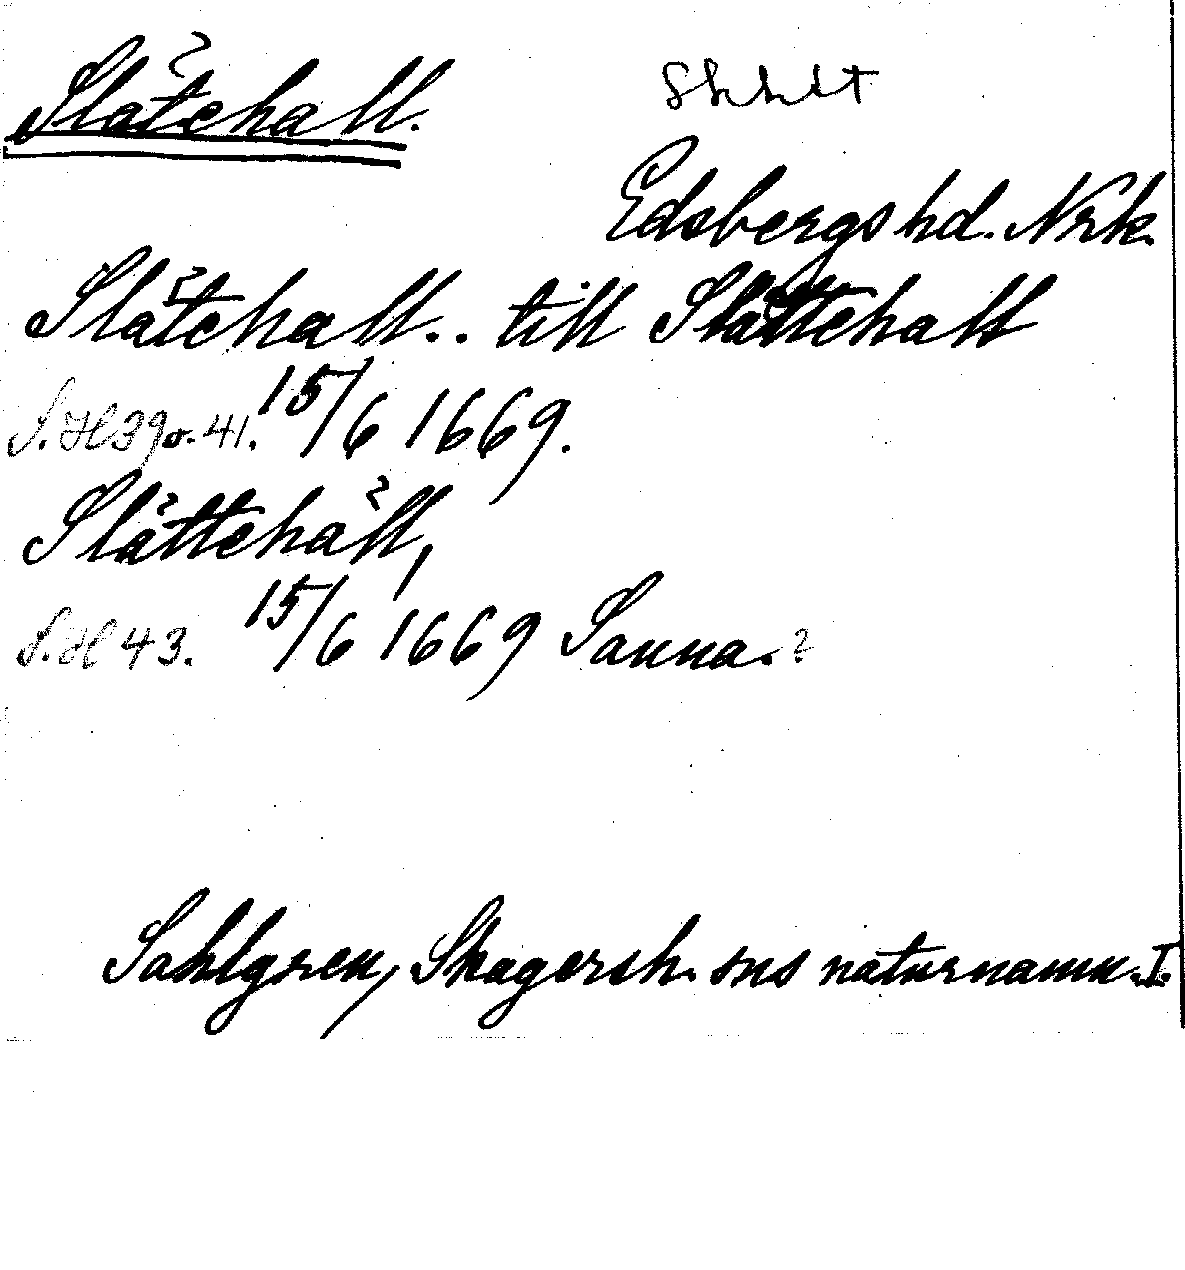 Slåtehall.
Edsbergs hd. Nrk.
Slåtehall.. till Slåttehall
S. H 39 o. 41. 15/6 1669.
Slåttehåll,
S. H 43. 15/6 1669 Sanna. ?
Sahlgren, Skagersh. sns naturnamn. I.